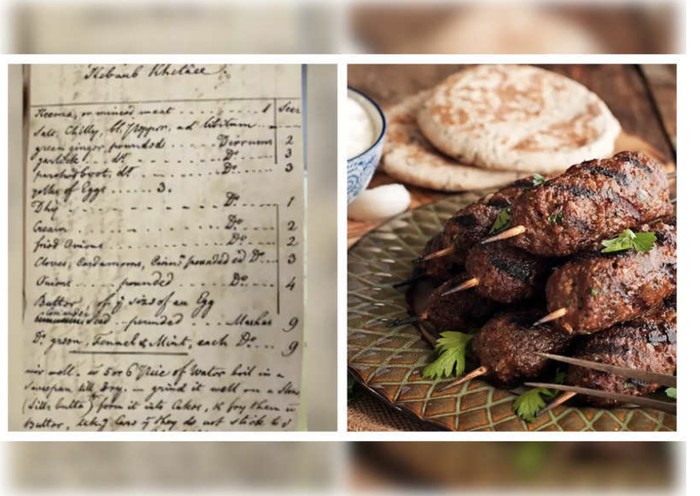 Kebaub Khelaee
Keema, or minced meat 1 Seer
Salt, Chilly, bl. Pepper, ad libitum
green ginger pounded Dirrums 2
garlick dt Do 3
parched boot, dt Do 3
yolks of Eggs 3.
Dhie Do 1
Cream Do 2
fried Onions Do 2
Cloves, Cardamoms, pounded Do 3
Onions pounded Do 4
Butter, of ye size of an Egg
Coriander Seed pounded Mashas 9
Do green, Fennel & Mint, each Do 9
mix well. in 5 or 6 of Water boil in a
Saucepan till dry. grind it well on a Stone
(Sill, butta) form it into Cakes, & fry them in
Butter, taking care yt they do not stick to